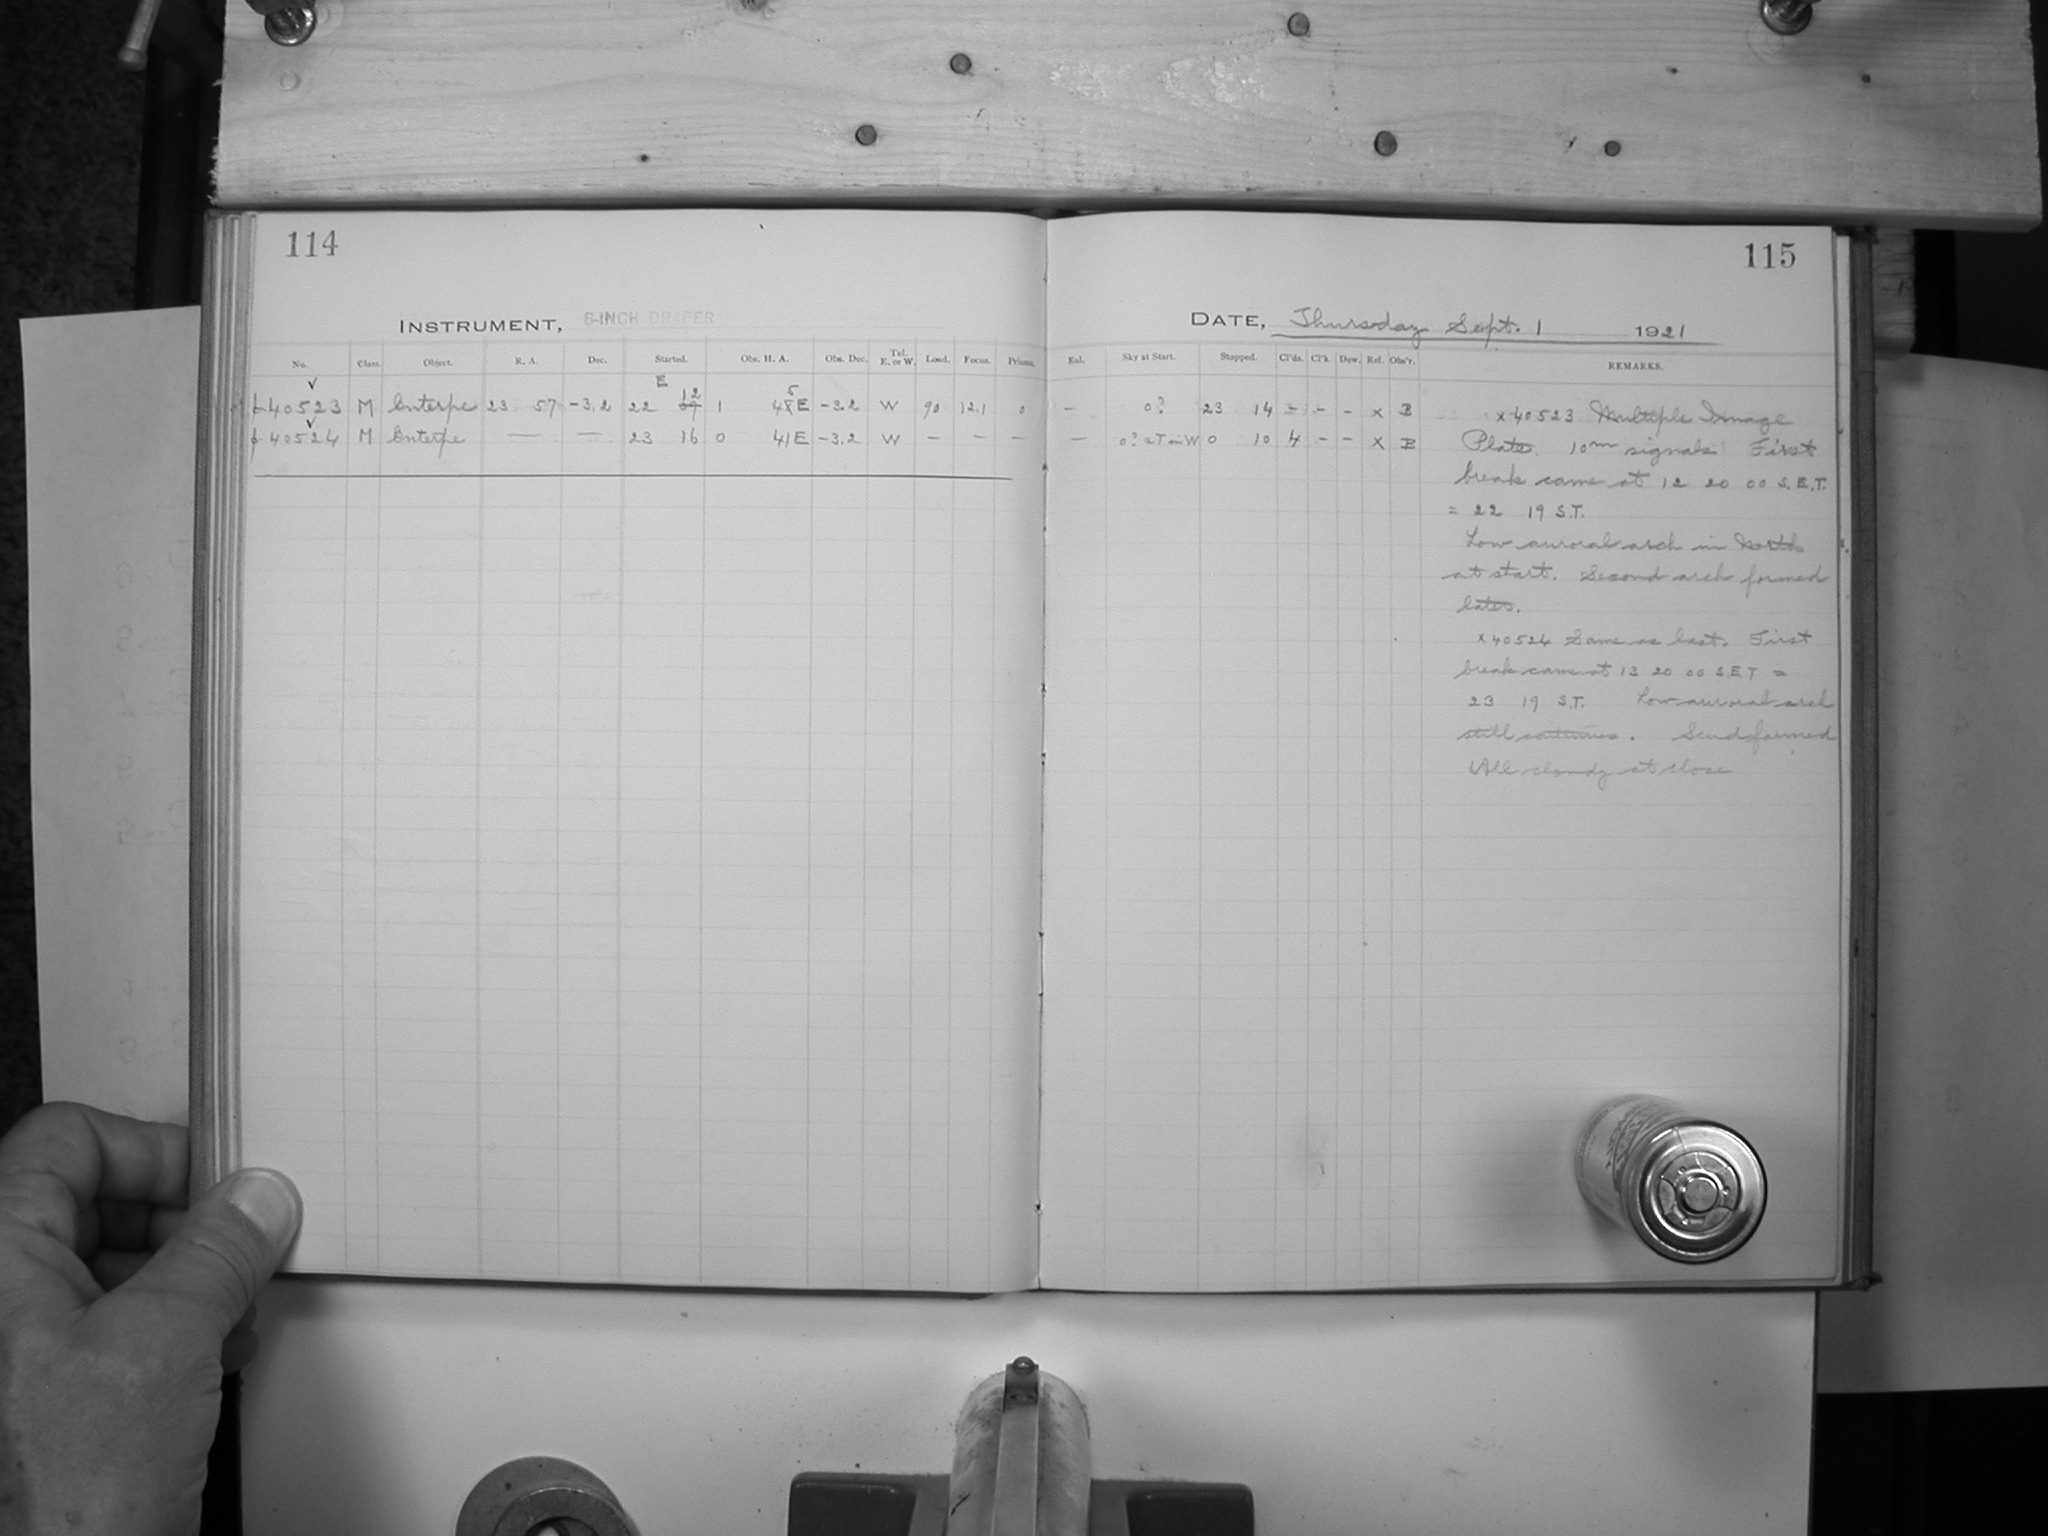 114
INSTRUMENT, 8-INCH DRAPER
No. Class. Object. R. A. Dec. Started. Obs. H. A. Obs. Dec. Tel. E. or W. Load. Focus. Prisms.
40523 M Enterpe 23 57 -3.2 22 09 12 E 1 48 5 E -3.2 W 90 12.1 0
40524 M Enterpe — — 23 16 0 41 E -3.2 W - - -
115
DATE, Thursday Sept. 1 1921
Exl. Sky at Start. Stopped. Cl'ds. Cl'k. Dew. Ref. Obs'r. REMARKS.
- 0? 23 14 - - - x B
- 0? in W 0 10 4 - - x B
x 40523 Multiple Image
Plate. 10m signals First
break came at 12 20 00 S.E.T.
= 22 19 S.T.
Low auroral arch in North
at start. Second arch formed
later.
x 40524 Same as last. First
break came at 13 20 00 S.E.T =
23 19 S.T. Low auroral arch
still continues. formed
All cloudy at close